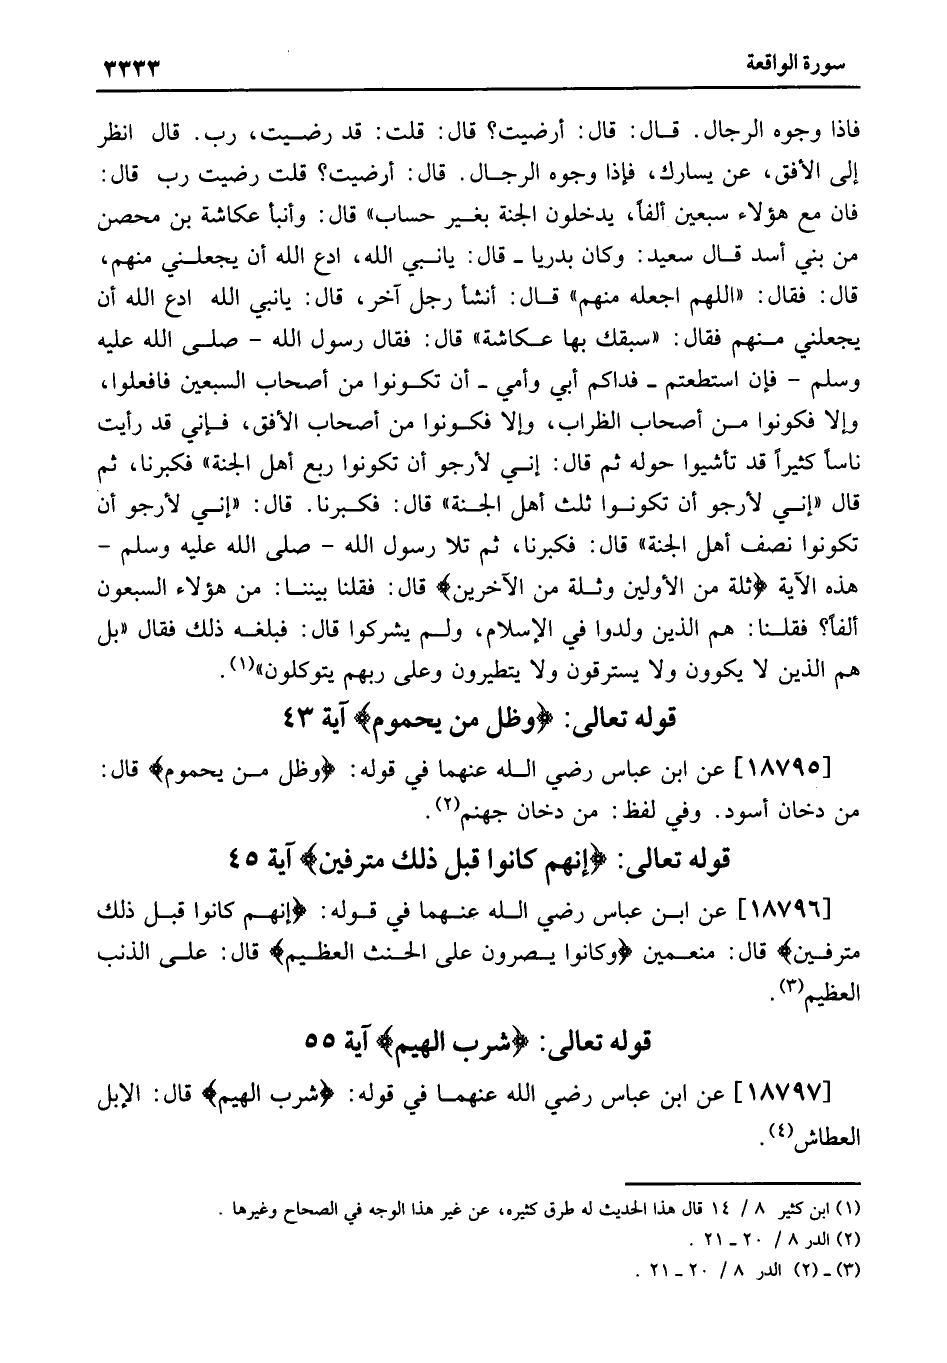 سورة الواقعة
٣٣٣٣
فاذا وجوه الرجال. قال: قال: أرضيت؟ قال: قلت: قد رضيت، رب. قال انظر
إلى الأفق، عن يسارك، فإذا وجوه الرجال. قال: أرضيت؟ قلت رضيت رب قال:
فان مع هؤلاء سبعين ألفاً، يدخلون الجنة بغير حساب» قال: وأنبأ عكاشة بن محصن
من بني أسد قال سعيد: وكان بدريا ـ قال: يانبي الله، ادع الله أن يجعلني منهم،
قال: فقال: «اللهم اجعله منهم» قال: أنشأ رجل آخر، قال: يانبي الله ادع الله أن
يجعلني منهم فقال: «سبقك بها عكاشة» قال: فقال رسول الله - صلى الله عليه
وسلم - فإن استطعتم ـ فداكم أبي وأمي ـ أن تكونوا من أصحاب السبعين فافعلوا،
وإلا فكونوا من أصحاب الظراب، وإلا فكونوا من أصحاب الأفق، فإني قد رأيت
ناساً كثيراً قد تأشبوا حوله ثم قال: إني لأرجو أن تكونوا ربع أهل الجنة» فكبرنا، ثم
قال «إني لأرجو أن تكونوا ثلث أهل الجنة» قال: فكبرنا. قال: «إني لأرجو أن
تكونوا نصف أهل الجنة» قال: فكبرنا، ثم تلا رسول الله - صلى الله عليه وسلم -
هذه الآية ﴿ثلة من الأولين وثلة من الآخرين﴾ قال: فقلنا بيننا: من هؤلاء السبعون
ألفاً؟ فقلنا: هم الذين ولدوا في الإسلام، ولم يشركوا قال: فبلغه ذلك فقال «بل
هم الذين لا يكوون ولا يسترقون ولا يتطيرون وعلى ربهم يتوكلون»(١).
قوله تعالى: ﴿وظل من يحموم﴾ آية ٤٣
[١٨٧٩٥] عن ابن عباس رضي الله عنهما في قوله: ﴿وظل من يحموم﴾ قال:
من دخان أسود. وفي لفظ: من دخان جهنم(٢).
قوله تعالى: ﴿إنهم كانوا قبل ذلك مترفين﴾ آية ٤٥
[١٨٧٩٦] عن ابن عباس رضي الله عنهما في قوله: ﴿إنهم كانوا قبل ذلك
مترفين﴾ قال: منعمين ﴿وكانوا يصرون على الحنث العظيم﴾ قال: على الذنب
العظيم(٣).
قوله تعالى: ﴿شرب الهيم﴾ آية ٥٥
[١٨٧٩٧] عن ابن عباس رضي الله عنهما في قوله: ﴿شرب الهيم﴾ قال: الإبل
العطاش(٤).
(١) ابن كثير ٨ / ١٤ قال هذا الحديث له طرق كثيره، عن غير هذا الوجه في الصحاح وغيرها .
(٢) الدر ٨ / ٢٠ ـ ٢١ .
(٣) ـ (٢) الدر ٨ / ٢٠ ـ ٢١ .